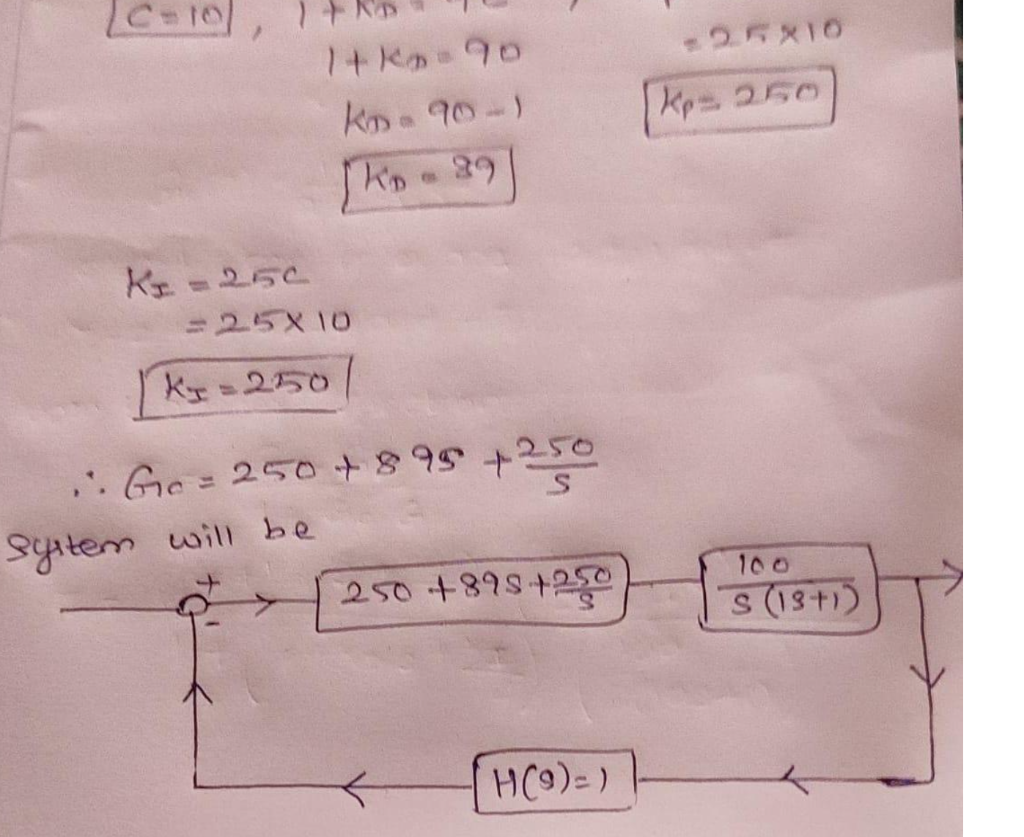 C=10, 1+KD
1+KD=90
=25×10
KD=90-1
KP=250
KD=89
KI=25C
=25×10
KI=250
∴ Gc = 250 + 89s + 250/s
System will be
+
250 + 89s + 250/s
100/s(1s+1)
-
H(s)=1